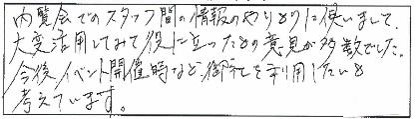 内覧会でのスタッフ間の情報のやりとりに使いまして、
大変活用してみて役に立ったとの意見が多数でした。
今後イベント開催時など御社を利用したいと
考えています。